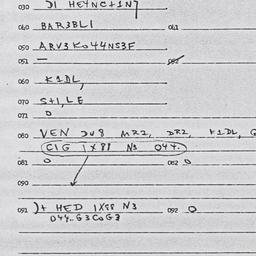 030 DI HE4NC+1N7
040 BAR3BL1 041
050 ARV3K044NS3F
051 — 052
060 K1DL,
070 S+1,LE
071 0
080 VEN DU8 MR2, DR2, K1DL,
C1G 1X88 N3 044.
081 0 082 0
090
091 )+ HED 1X88 N3 092 0
044.G3C0G3